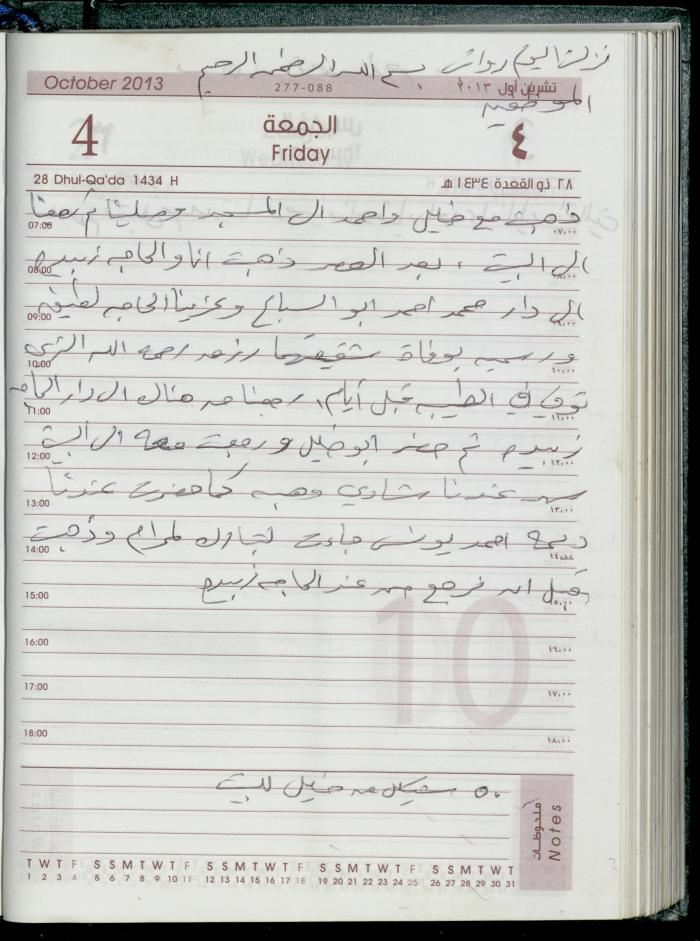 نزلت اليوم رواتب بسم الله الرحمن الرحيم
الموظفين
October 2013 277-088 تشرين أول ٢٠١٣
4 الجمعة ٤
Friday
28 Dhul-Qa'da 1434 H ٢٨ ذو القعدة ١٤٣٤ هـ
ذهبت مع خليل واحمد الى المسجد وصلينا ثم رجعنا
07:00 ٠٧,٠٠
الى البيت ، بعد العصر ذهبت انا والحاجه زبيده
08:00 ٠٨,٠٠
الى دار محمد احمد ابو السباع وعزينا الحاجه لطيفه
09:00 ٠٩,٠٠
ورسميه بوفاة شقيقهما رحمه الله الذي
10:00 ١٠,٠٠
توفي في الطيبه قبل أيام، رجعنا من هناك الى دار الحاجه
11:00 ١١,٠٠
زبيده ثم حضر ابو خليل ورجعت معه الى البيت
12:00 ١٢,٠٠
سهر عندنا شادي وهبه كما حضرت عندنا
13:00 ١٣,٠٠
ديمه احمد يونس جاءت لمرام وذهبت
14:00 ١٤,٠٠
قبل ان نرجع من عند الحاجه زبيده
15:00 ١٥,٠٠
10
16:00 ١٦,٠٠
17:00 ١٧,٠٠
18:00 ١٨,٠٠
٥٠ شيكل من خليل للبيت
ملحوظات Notes
T W T F S S M T W T F S S M T W T F S S M T W T F S S M T W T
1 2 3 4 5 6 7 8 9 10 11 12 13 14 15 16 17 18 19 20 21 22 23 24 25 26 27 28 29 30 31